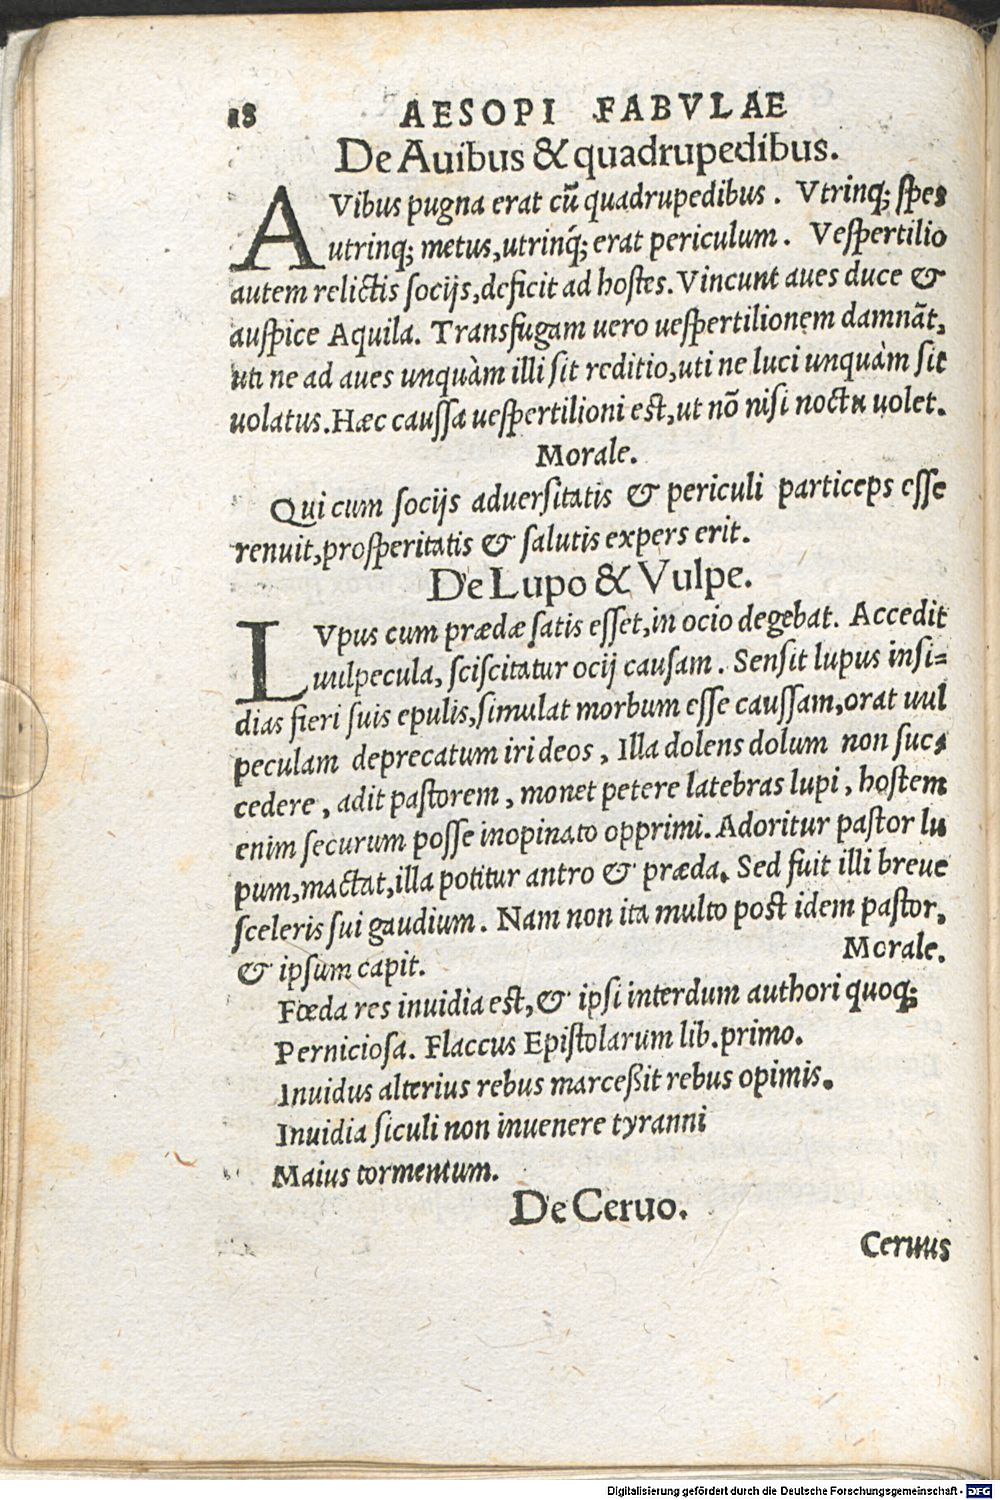 18 AESOPI FABVLAE
De Auibus & quadrupedibus.
AVibus pugna erat cũ quadrupedibus. Vtrinq; ſpes
utrinq; metus, utrinq́; erat periculum. Veſpertilio
autem relictis ſocijs, deficit ad hoſtes. Vincunt aues duce &
auſpice Aquila. Transfugam uero ueſpertilionem damnãt,
uti ne ad aues unquàm illi ſit reditio, uti ne luci unquàm ſit
uolatus. Hæc cauſſa ueſpertilioni eſt, ut nõ niſi noctu uolet.
Morale.
Qui cum ſocijs aduerſitatis & periculi particeps eſſe
renuit, proſperitatis & ſalutis expers erit.
De Lupo & Vulpe.
LVpus cum prædæ ſatis eſſet, in ocio degebat. Accedit
uulpecula, ſciſcitatur ocij cauſam. Senſit lupus inſi=
dias fieri ſuis epulis, ſimulat morbum eſſe cauſſam, orat uul
peculam deprecatum iri deos, Illa dolens dolum non ſuc=
cedere, adit paſtorem, monet petere latebras lupi, hoſtem
enim ſecurum poſſe inopinato opprimi. Adoritur paſtor lu
pum, mactat, illa potitur antro & præda. Sed fuit illi breue
ſceleris ſui gaudium. Nam non ita multo poſt idem paſtor,
& ipſum capit. Morale.
Fœda res inuidia eſt, & ipſi interdum authori quoq;
Pernicioſa. Flaccus Epiſtolarum lib. primo.
Inuidus alterius rebus marceßit rebus opimis.
Inuidia ſiculi non inuenere tyranni
Maius tormentum.
De Ceruo.
Ceruus
Digitalisierung gefördert durch die Deutsche Forschungsgemeinschaft - DFG